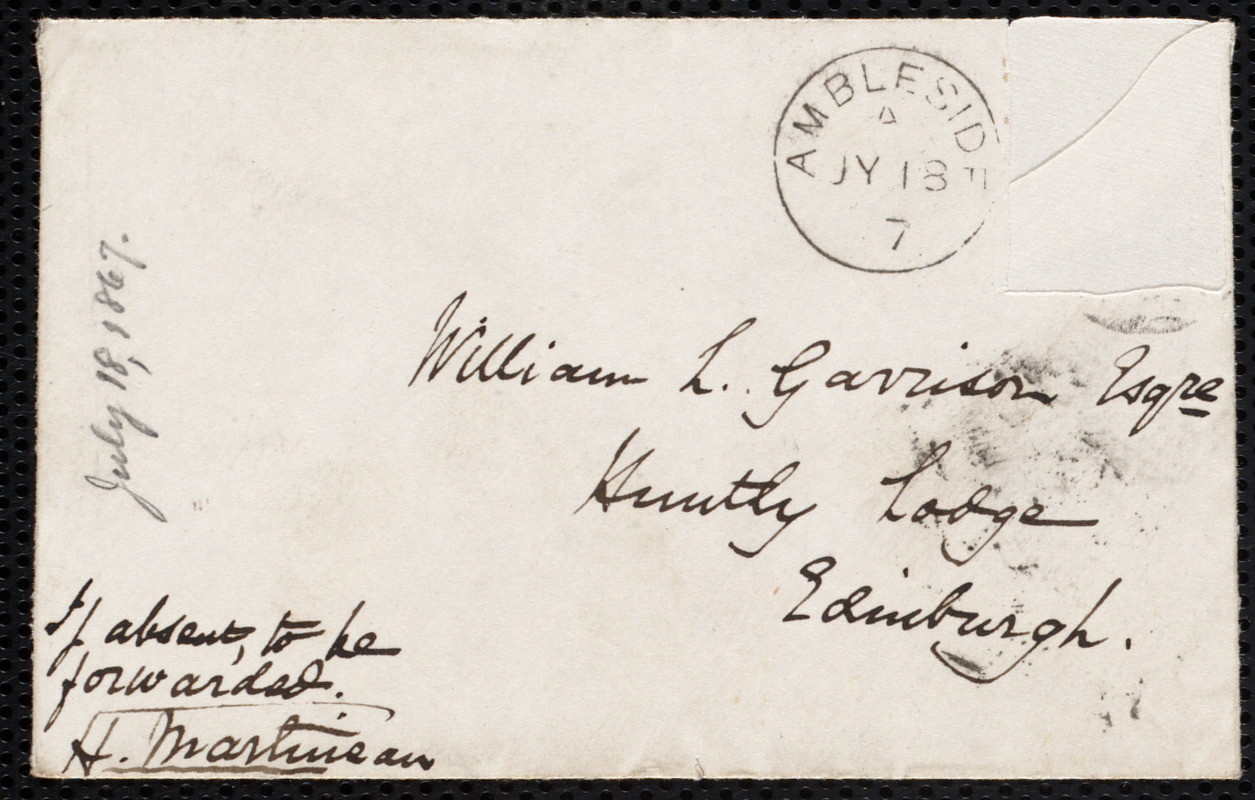 AMBLESIDE
A
JY 18
7
July 18, 1867.
William L. Garrison Esqre
Huntly Lodge
Edinburgh.
If absent, to be
forwarded.
H. Martineau